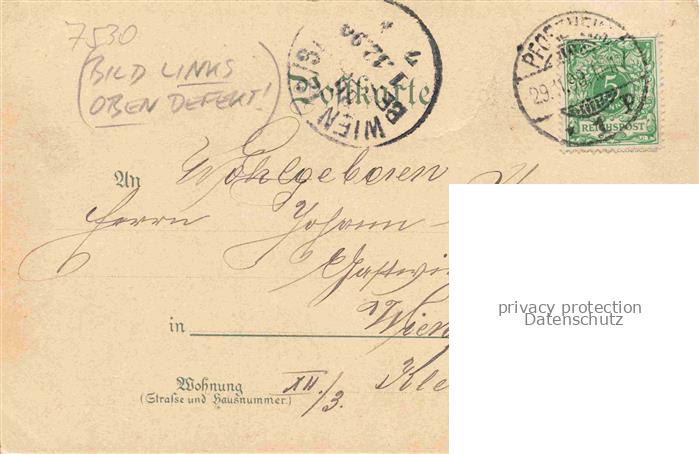 7530
(BILD LINKS
OBEN DEFEKT!)
Postkarte
WIEN
5
REICHSPOST
An Wohlgeboren
Herrn Johann
Gastwi
in Wien
Wohnung XII/3. Kle
(Straße und Hausnummer.)
privacy protection
Datenschutz